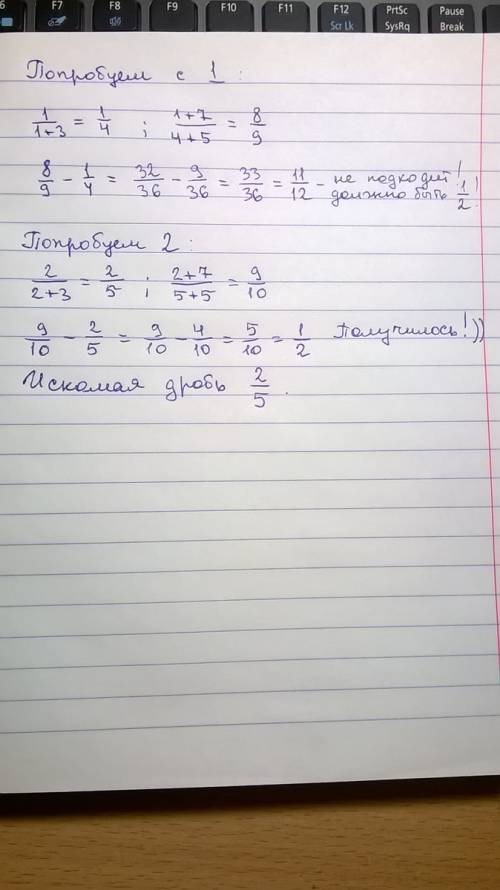 6 F7 F8 F9 F10 F11 F12 PrtSc Pause
Scr Lk SysRq Break
Попробуем с 1 :
1/(1+3) = 1/4 ; (1+7)/(4+5) = 8/9
8/9 - 1/4 = 32/36 - 9/36 = 33/36 = 11/12 - не подходит!
должно быть 1/2!
Попробуем 2 :
2/(2+3) = 2/5 ; (2+7)/(5+5) = 9/10
9/10 - 2/5 = 9/10 - 4/10 = 5/10 = 1/2 Получилось!))
Искомая дробь 2/5 .